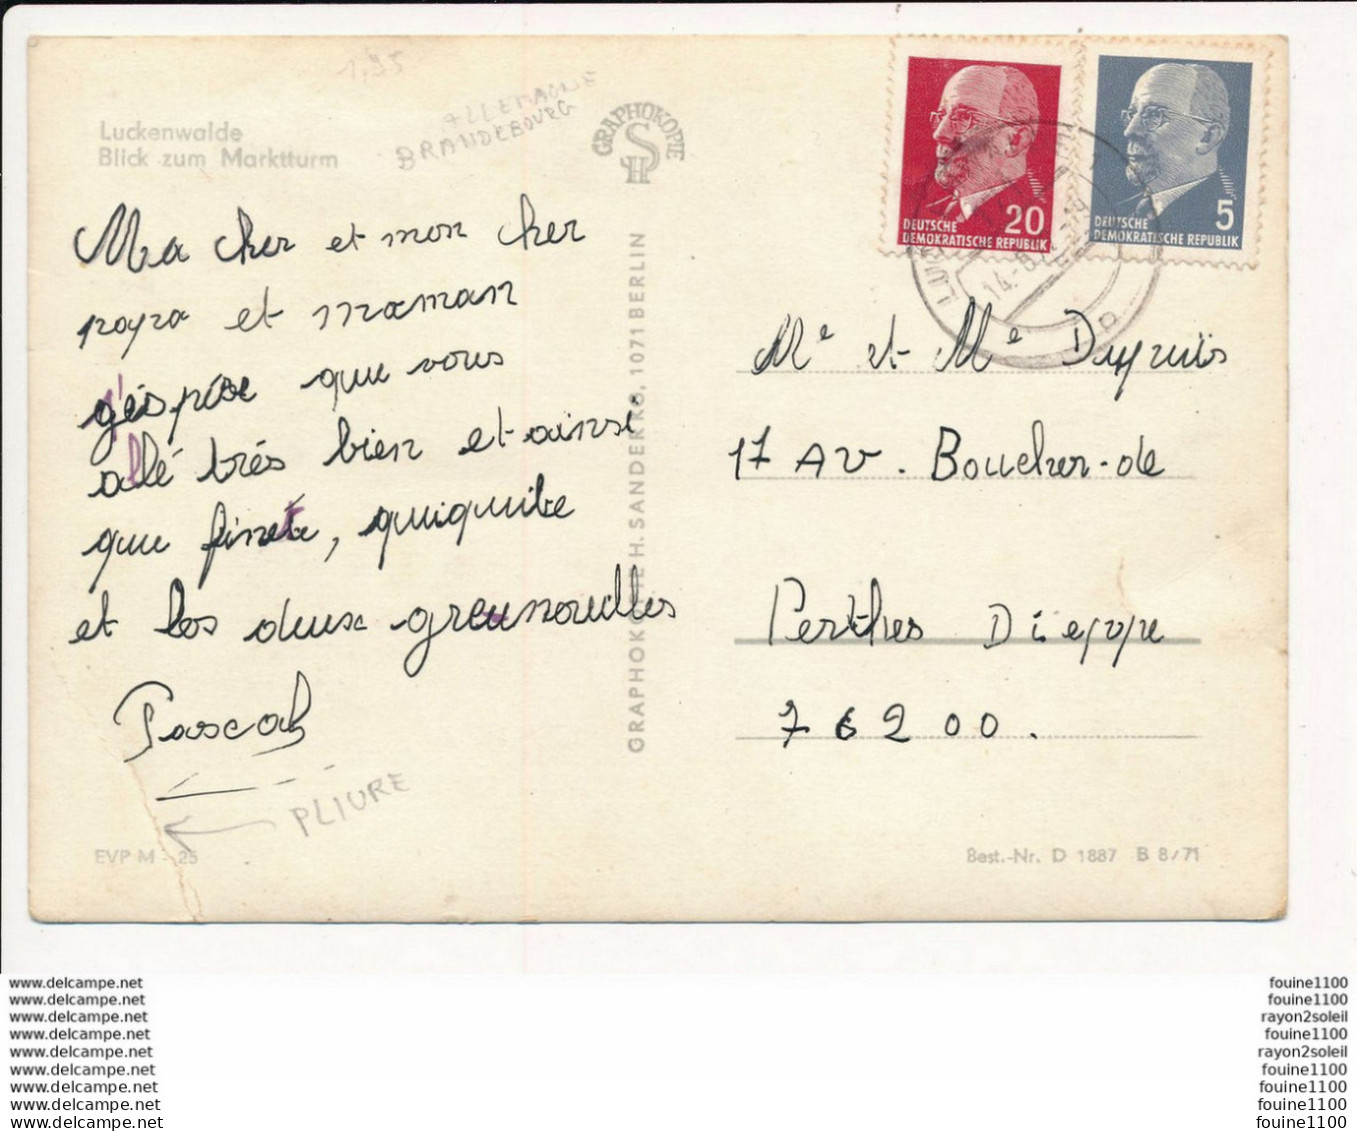 1,95
ALLEMAGNE
BRANDEBOURG
Luckenwalde
Blick zum Marktturm
GRAPHOKOPIE
H S
DEUTSCHE
DEMOKRATISCHE REPUBLIK
20
DEUTSCHE
DEMOKRATISCHE REPUBLIK
5
Ma cher et mon cher
papa et maman
j'éspère que vous
allé trés bien et ainsi
que finete, quiquite
et les deux grenouilles
Pascal
PLIURE
GRAPHOKOPIE H. SANDER KG, 1071 BERLIN
Me et Me Dupuis
17 AV. Boucher-de
Perthes Dieppe
76200.
EVP M -,25
Best.-Nr. D 1887 B 8/71
www.delcampe.net
www.delcampe.net
www.delcampe.net
www.delcampe.net
www.delcampe.net
www.delcampe.net
www.delcampe.net
www.delcampe.net
www.delcampe.net
fouine1100
fouine1100
rayon2soleil
fouine1100
rayon2soleil
fouine1100
fouine1100
fouine1100
fouine1100